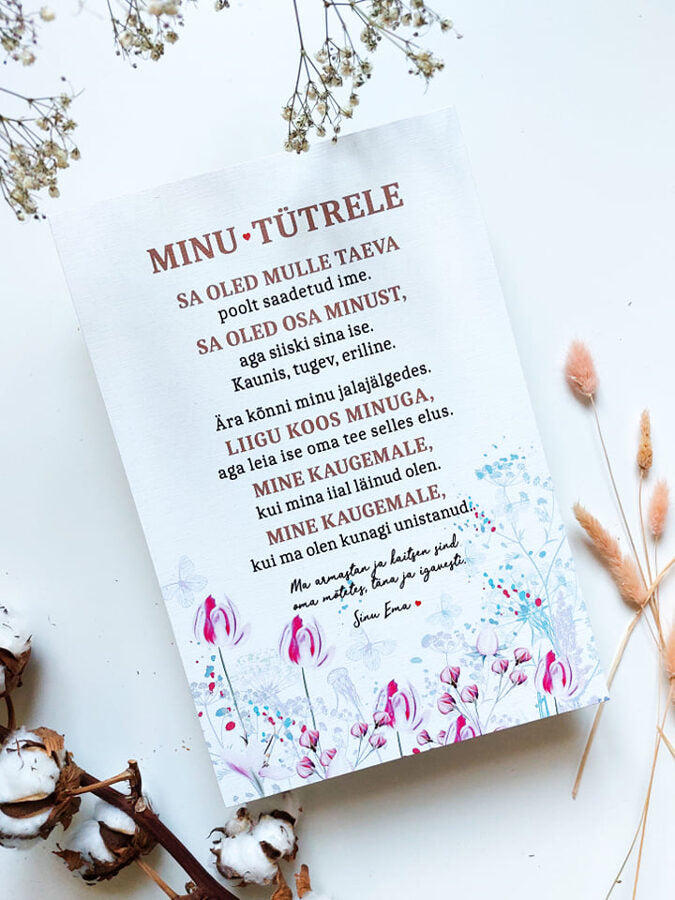 MINU TÜTRELE
SA OLED MULLE TAEVA
poolt saadetud ime.
SA OLED OSA MINUST,
aga siiski sina ise.
Kaunis, tugev, eriline.
Ära kõnni minu jalajälgedes.
LIIGU KOOS MINUGA,
aga leia ise oma tee selles elus.
MINE KAUGEMALE,
kui mina iial läinud olen.
MINE KAUGEMALE,
kui ma olen kunagi unistanud.
Ma armastan ja kaitsen sind
oma mõtetes, täna ja igavesti.
Sinu Ema